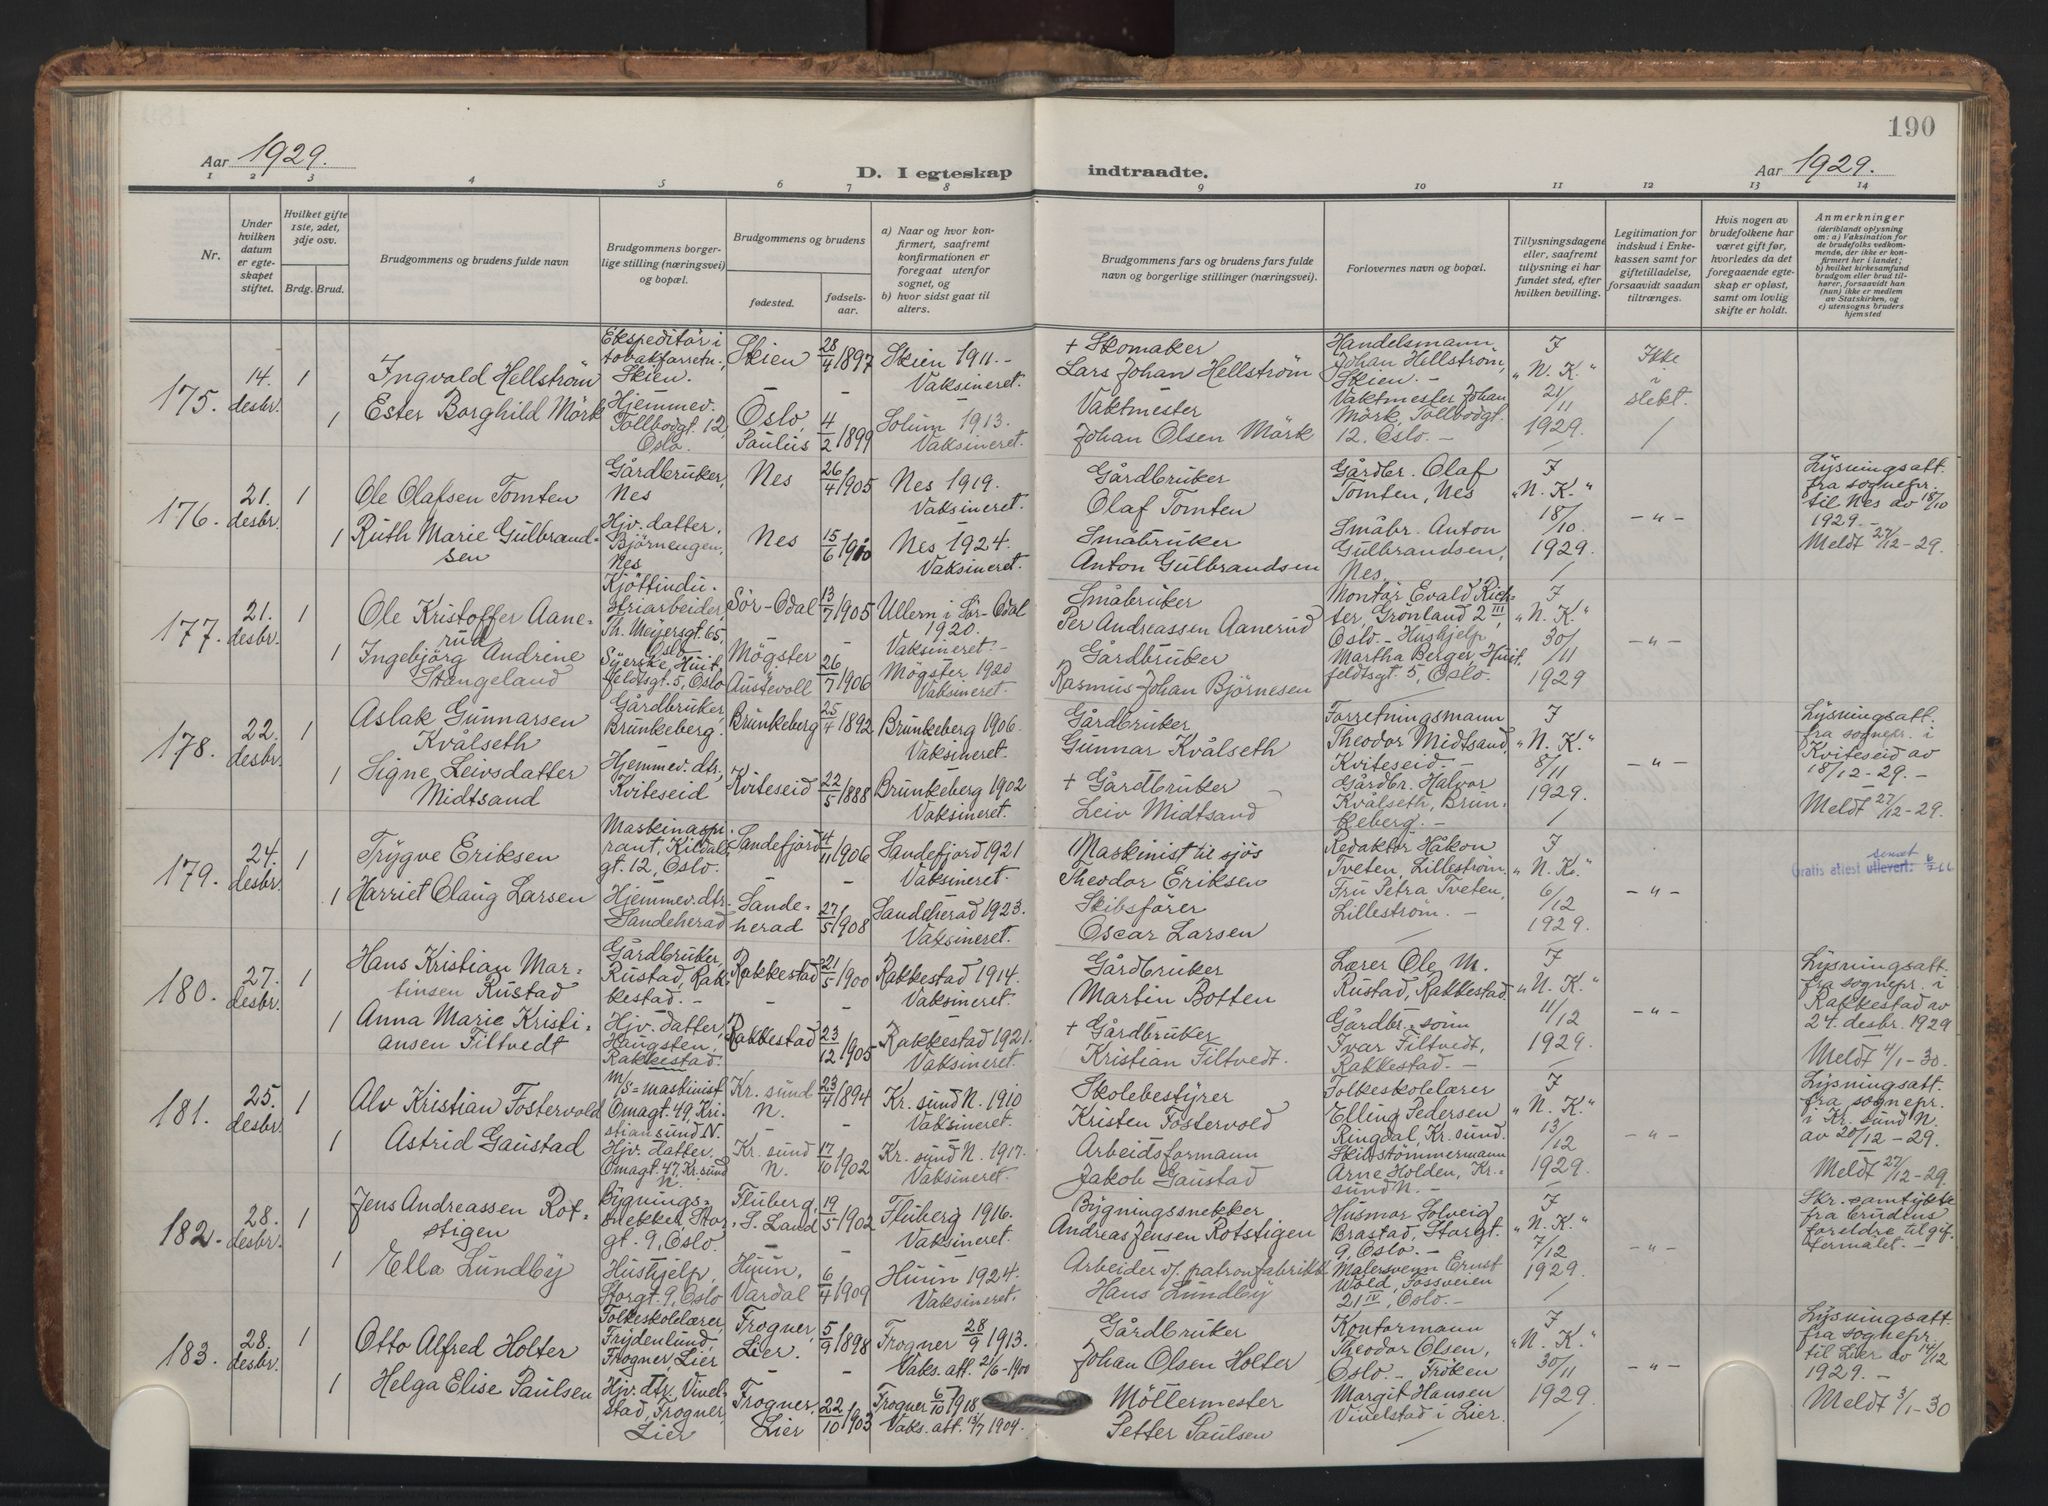 190
Aar 1929.
D. I egteskap indtraadte.
Aar 1929.
1 2 3 4 5 6 7 8 9 10 11 12 13 14
Nr.
Under hvilken datum er egteskapet stiftet.
Hvilket gifte 1ste, 2det, 3dje osv.
Brdg. Brud.
Brudgommens og brudens fulde navn
Brudgommens borgerlige stilling (næringsvei) og bopæl.
Brudgommens og brudens
fødested.
fødselsaar.
a) Naar og hvor konfirmert, saafremt konfirmationen er foregaat utenfor sognet, og
b) hvor sidst gaat til alters.
Brudgommens fars og brudens fars fulde navn og borgerlige stillinger (næringsvei).
Forlovernes navn og bopæl.
Tillysningsdagene eller, saafremt tillysning ei har fundet sted, efter hvilken bevilling.
Legitimation for indskud i Enkekassen samt for giftetilladelse, forsaavidt saadan tiltrænges.
Hvis nogen av brudefolkene har været gift før, hvorledes da det foregaaende egteskap er opløst, samt om lovlig skifte er holdt.
Anmerkninger
(deriblandt oplysning om: a) Vaksination for de brudefolks vedkommende, der ikke er konfirmert her i landet; b) hvilket kirkesamfund brudgom eller brud tilhører, forsaavidt han (hun) ikke er medlem av Statskirken, og c) utensogns bruders hjemsted
175. 14. desbr. 1 Ingvald Hellström Ekspeditör i tobakforretn., Skien. Skien 28/4 1897 Skien 1911.- Vaksineret. + Skomaker Lars Johan Hellström Handelsmann Johan Hellström, Skien. - I "N. K." 21/11 1929. Ikke i slekt.
1 Ester Borghild Mörk Hjemmev. Tollbodgt. 12, Oslo. Oslo, Paulus 4/2 1899 Solum 1913. Vaksineret. Vaktmester Johan Olsen Mörk Vaktmester Johan Mörk, Tollbodgt. 12, Oslo. -
176. 21. desbr. 1 Ole Olafsen Tomten Gårdbruker, Nes Nes 26/4 1905 Nes 1919. Vaksineret. Gårdbruker Olaf Tomten Gårdbr. Olaf Tomten, Nes I "N. K." 18/10 1929. -"- Lysningsatt. fra sognepr. til Nes av 18/10 1929. - Meldt 27/12-29.
1 Ruth Marie Gulbrandsen Hjv. datter, Björnengen, Nes Nes 15/6 1910 Nes 1924. Vaksineret. Småbruker Anton Gulbrandsen Småbr. Anton Gulbrandsen, Nes.
177. 21. desbr. 1 Ole Kristoffer Aanerud Kjöttindustriarbeider, Th. Meyersgt. 65, Oslo Sör-Odal 13/7 1905 Ullern i Sör-Odal 1920. Vaksineret.- Småbruker Per Andreassen Aanerud Montör Evald Richter, Grönland 2 III, Oslo - Hushjelp I "N. K." 30/11 1929 -"-
1 Ingebjörg Andrine Stangeland Syerske, Huitfeldtsgt. 5, Oslo Mögster Austevoll 26/7 1906 Mögster 1920 Vaksineret. Gårdbruker Rasmus Johan Björnesen Martha Berger, Huitfeldtsgt. 5, Oslo.
178. 22. desbr. 1 Aslak Gunnarsen Kvålseth Gårdbruker, Brunkeberg. Brunkeberg 25/4 1892 Brunkeberg 1906. Vaksineret. Gårdbruker Gunnar Kvålseth Forretningsmann Theodor Midtsand, Kviteseid. - I "N. K." 8/11 1929. -"- Lysningsatt. fra sognepr. i Kviteseid av 18/12-29. - Meldt 27/12-29.
1 Signe Leivsdatter Midtsand Hjemmev. dtr, Kviteseid Kviteseid 22/5 1888 Brunkeberg 1902 Vaksineret. + Gårdbruker Leiv Midtsand Gårdbr. Halvor Kvålseth, Brunkeberg. -
179. 24. desbr. 1 Trygve Eriksen Maskinaspirant, Kildalsgt. 12, Oslo. Sandefjord 4/11 1906 Sandefjord 1921 Vaksineret. Maskinist til sjös Theodor Eriksen Redaktör Håkon Tveten, Lilleström. I "N. K." 6/12 1929. -"- Gratis attest utlevert: sendt
1 Harriet Olaug Larsen Hjemmev. dtr. Sandeherad Sandeherad 27/5 1908 Sandeherad 1923. Vaksineret. Skibsförer Oscar Larsen Fru Petra Tveten, Lilleström. -
180. 27. desbr. 1 Hans Kristian Martinsen Rustad Gårdbruker, Rustad, Rakkestad. - Rakkestad 21/5 1900 Rakkestad 1914. Vaksineret. Gårdbruker Martin Botten Lærer Ole M. Rustad, Rakkestad. I "N. K." 11/12 1929. -"- Lysningsatt. fra sognepr. i Rakkestad av 24. desbr. 1929 Meldt 4/1-30.
1 Anna Marie Kristiansen Filtvedt Hjv. datter, Haugsten, Rakkestad. Rakkestad 23/12 1905 Rakkestad 1921. Vaksineret. + Gårdbruker Kristian Filtvedt. Gårdbr.-sönn Ivar Filtvedt, Rakkestad. -
181. 25. desbr. 1 Alv Kristian Fostervold M/S=maskinist Omagt. 49, Kristiansund N. Kr. sund N. 23/7 1894 Kr. sund N. 1910 Vaksineret. Skolebestyrer Kristen Fostervold Folkeskolelærer Elling Pedersen Ringdal, Kr. sund. I "N. K." 13/12 1929. -"- Lysningsatt. fra sognepr. i Kr. sund N. av 20/12-29. Meldt 27/12-29.
1 Astrid Gaustad Hjv. datter, Omagt. 47, Kr. sund N. Kr. sund N. 17/10 1902 Kr. sund N. 1917. Vaksineret. Arbeidsformann Jakob Gaustad Skibstömmermann Arne Holden, Kr.=sund N. -
182. 28. desbr. 1 Jens Andreassen Rotstigen Bygningssnekker, Storgt. 9, Oslo. Fluberg, S. Land 19/5 1902 Fluberg 1916. Vaksineret. Bygningssnekker Andreas Jensen Rotstigen Husmor Solveig Brastad, Storgt. 9, Oslo. - I "N. K." 7/12 1929. -"- Skr. samtykke fra brudens foreldre til giftermålet. -
1 Ella Lundby Hushjelp, Storgt. 9, Oslo Hunn, Vardal 6/4 1909 Hunn 1924. Vaksineret. Arbeider v/ patronfabrikk Hans Lundby Malersvenn Ernst Wold, Fossveien 21 IV, Oslo. -
183. 28. desbr. 1 Otto Alfred Holter Folkeskolelærer, Frydenlund, Frogner, Lier Frogner, Lier. 5/9 1898 Frogner 28/9 1913. Vaks. att. 2/6-1900 Gårdbruker Johan Olsen Holter Kontormann Theodor Olsen, Oslo. - Fröken I "N. K." 30/11 1929 -"- Lysningsatt. fra sognepr. til Lier av 14/12 1929. - Meldt 3/1-30
1 Helga Elise Paulsen Hjv. dtr, Vivelstad, Frogner, Lier Frogner, Lier 22/10 1903 Frogner 6/10 1918. Vaks. att. 13/7 1904. Möllermester Petter Paulsen Margit Hansen Vivelstad i Lier.